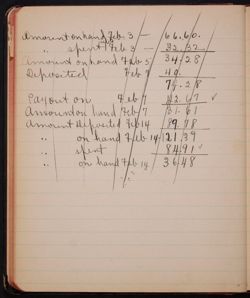 Amount on hand Feb 3 — 66.60.
" spent Feb 3 — 32.32
Amount on hand Feb 5 34/28
Deposited Feb 7 40.
74.28
Payout on Feb 7 42.67 ✓
Amount on hand Feb 7 31.61
Amount deposited Feb 14
" on hand Feb 14 121.39
" spent 84.91 ✓
" on hand Feb 14 36.48